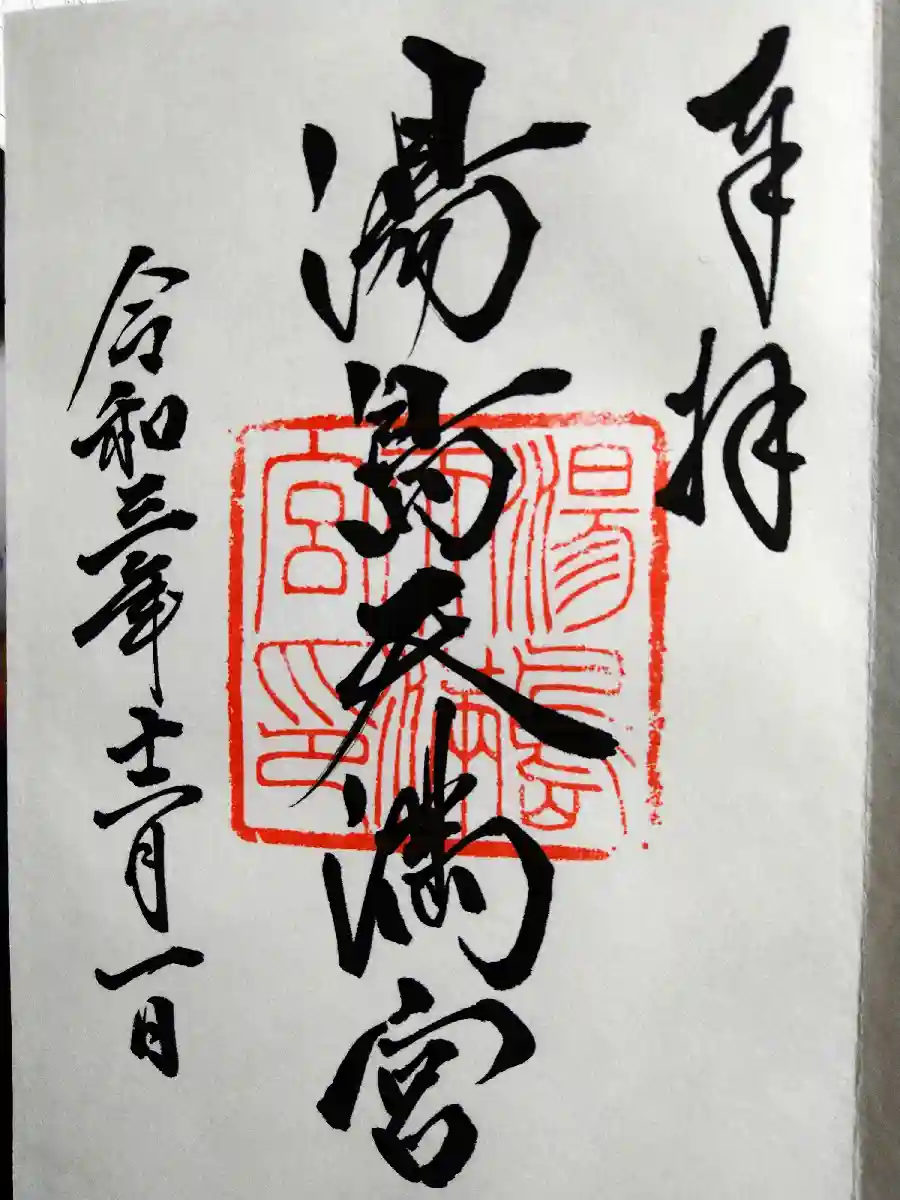 奉拝
湯島天満宮
令和三年十二月一日
湯島
天満
宮印